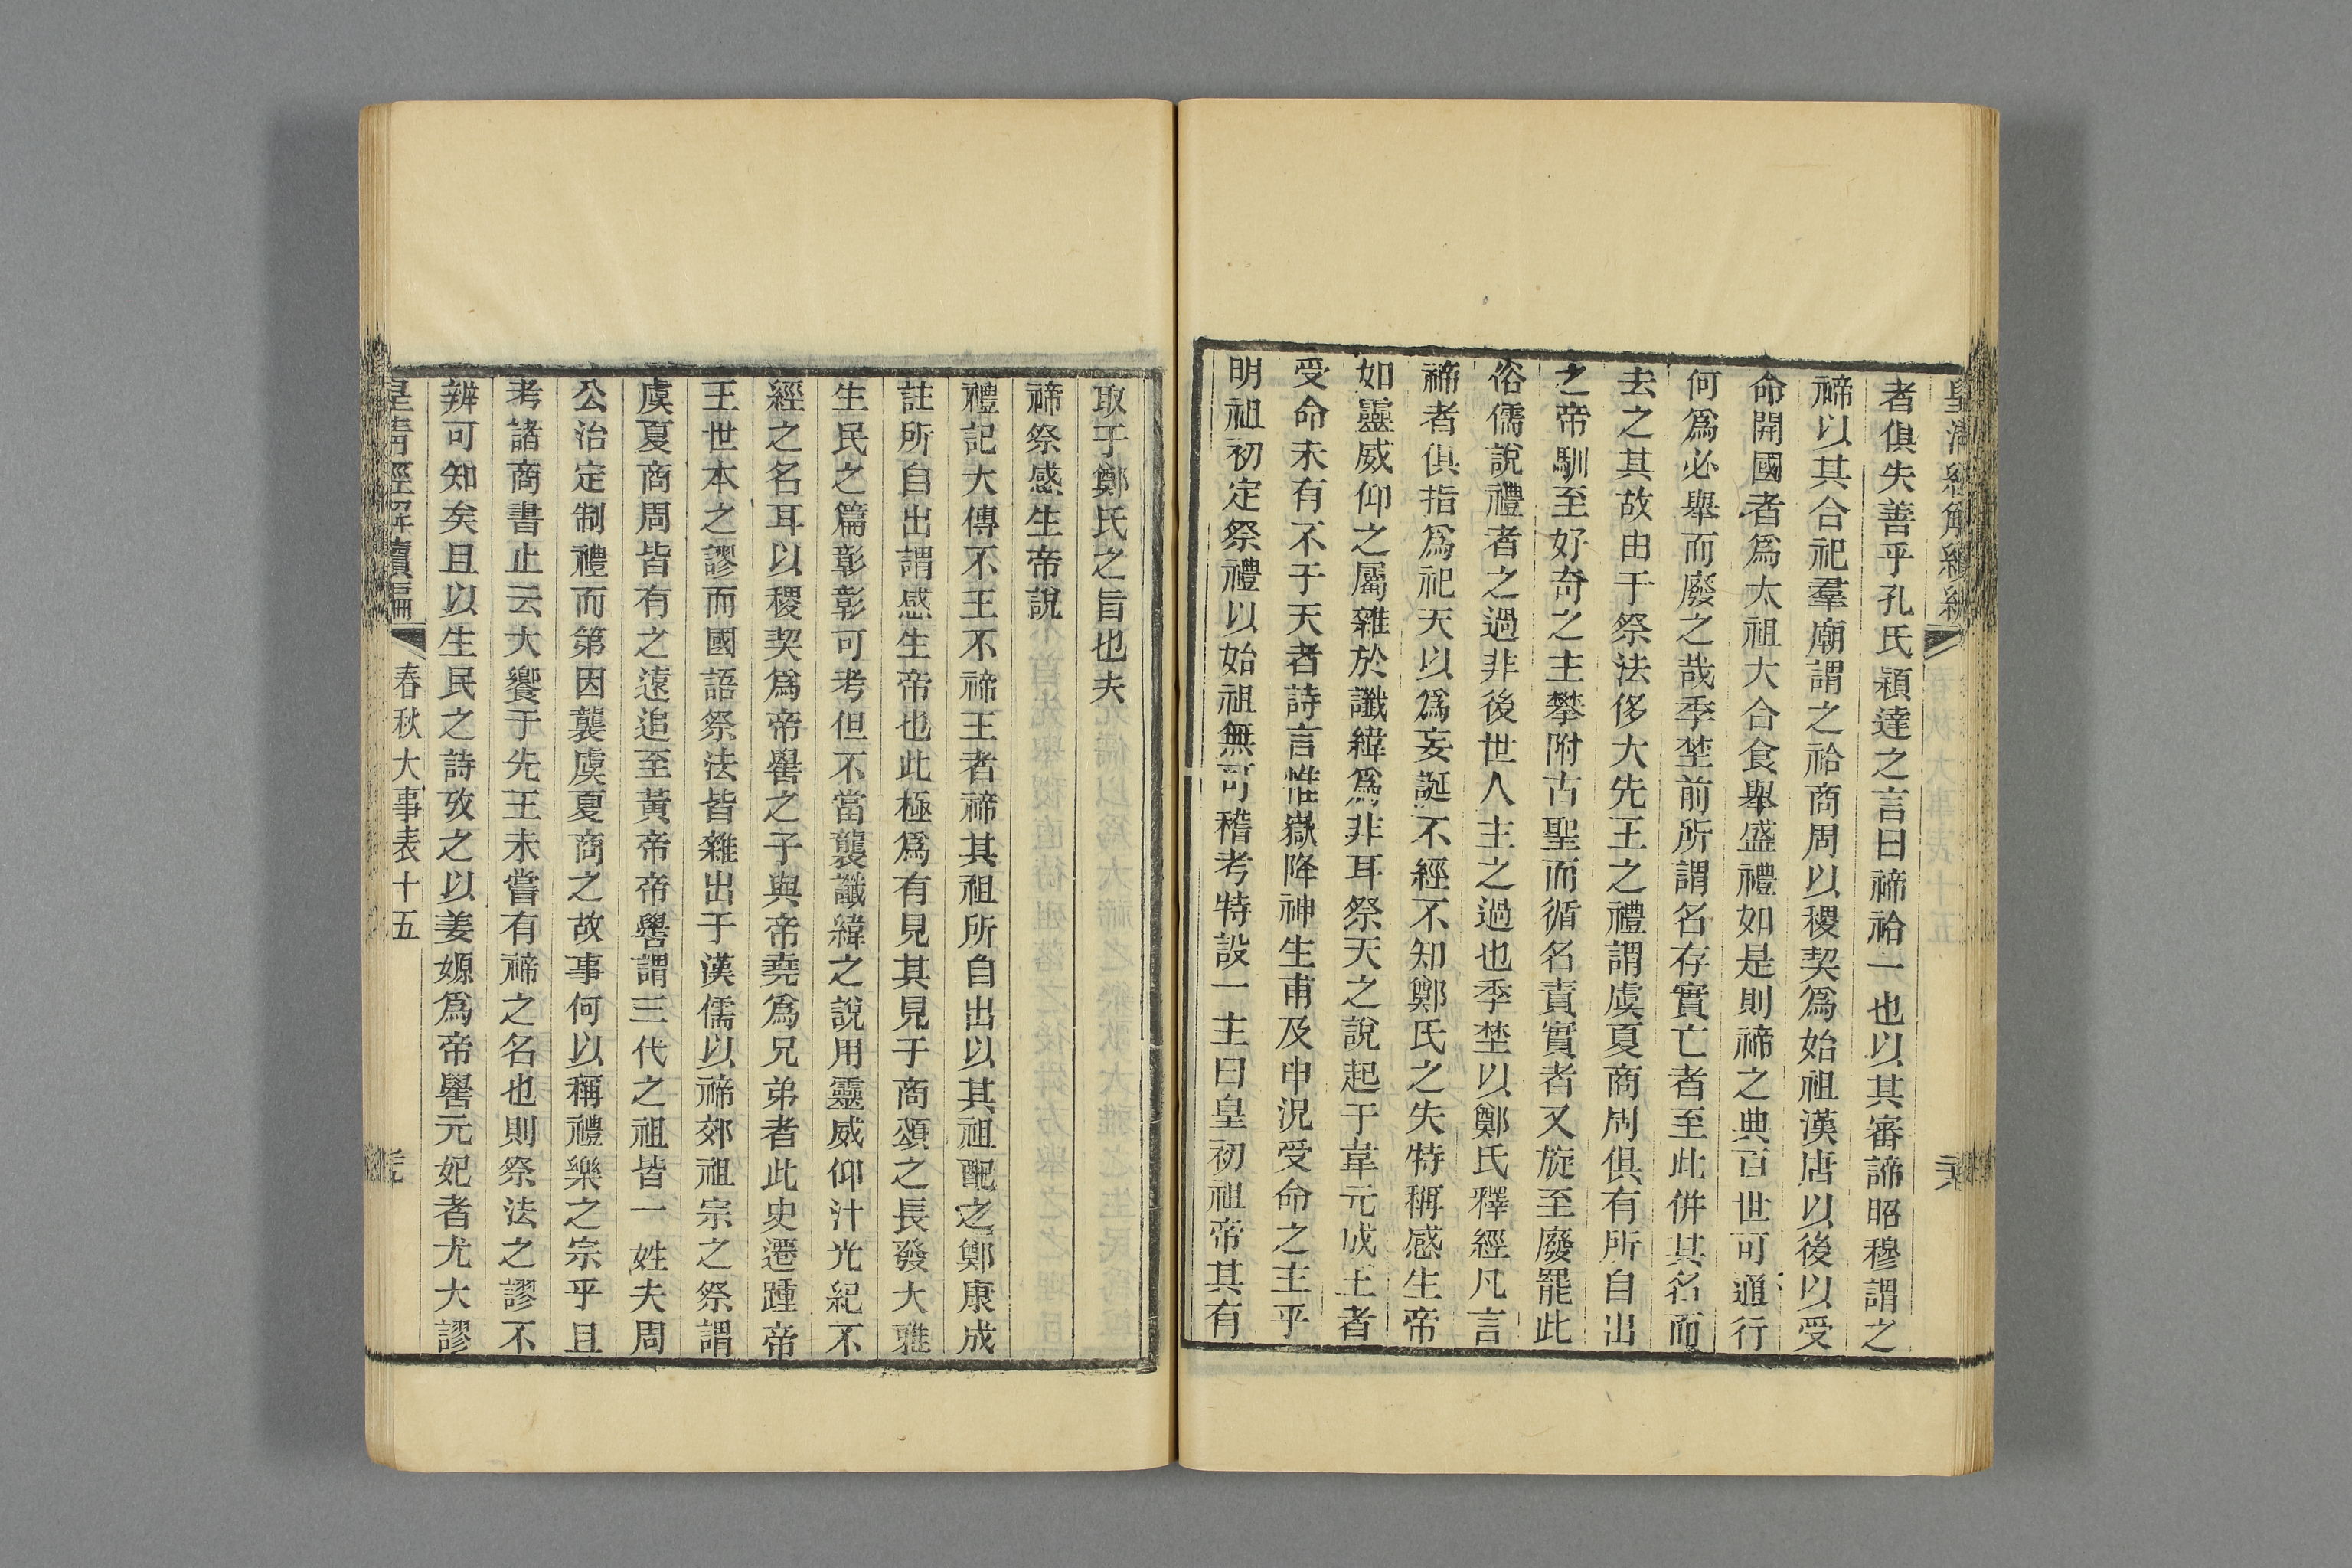 皇清經解續編
者俱失善乎孔氏穎達之言曰禘祫一也以其審諦昭穆謂之
禘以其合祀羣廟謂之祫商周以稷契爲始祖漢唐以後以受
命開國者爲太祖大合食舉盛禮如是則禘之典百世可通行
何爲必舉而廢之哉季埜前所謂名存實亡者至此併其名而
去之其故由于祭法侈大先王之禮謂虞夏商周俱有所自出
之帝馴至好奇之主攀附古聖而循名責實者又旋至廢罷此
俗儒說禮者之過非後世人主之過也季埜以鄭氏釋經凡言
禘者俱指爲祀天以爲妄誕不經不知鄭氏之失特稱感生帝
如靈威仰之屬雜於讖緯爲非耳祭天之說起于韋元成王者
受命未有不于天者詩言惟嶽降神生甫及申況受命之主乎
明祖初定祭禮以始祖無可稽考特設一主曰皇初祖帝其有
取于鄭氏之旨也夫
禘祭感生帝說
禮記大傳不王不禘王者禘其祖所自出以其祖配之鄭康成
註所自出謂感生帝也此極爲有見其見于商頌之長發大雅
生民之篇彰彰可考但不當襲讖緯之說用靈威仰汁光紀不
經之名耳以稷契爲帝嚳之子與帝堯爲兄弟者此史遷踵帝
王世本之謬而國語祭法皆雜出于漢儒以禘郊祖宗之祭謂
虞夏商周皆有之遠追至黃帝帝嚳謂三代之祖皆一姓夫周
公治定制禮而第因襲虞夏商之故事何以稱禮樂之宗乎且
考諸商書止云大饗于先王未嘗有禘之名也則祭法之謬不
辨可知矣且以生民之詩攷之以姜嫄爲帝嚳元妃者尤大謬
皇清經解續編
春秋大事表十五